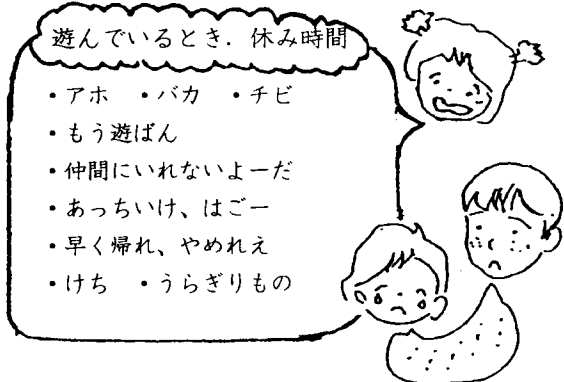 遊んでいるとき．休み時間
・アホ　・バカ　・チビ
・もう遊ばん
・仲間にいれないよーだ
・あっちいけ、はごー
・早く帰れ、やめれえ
・けち　・うらぎりもの